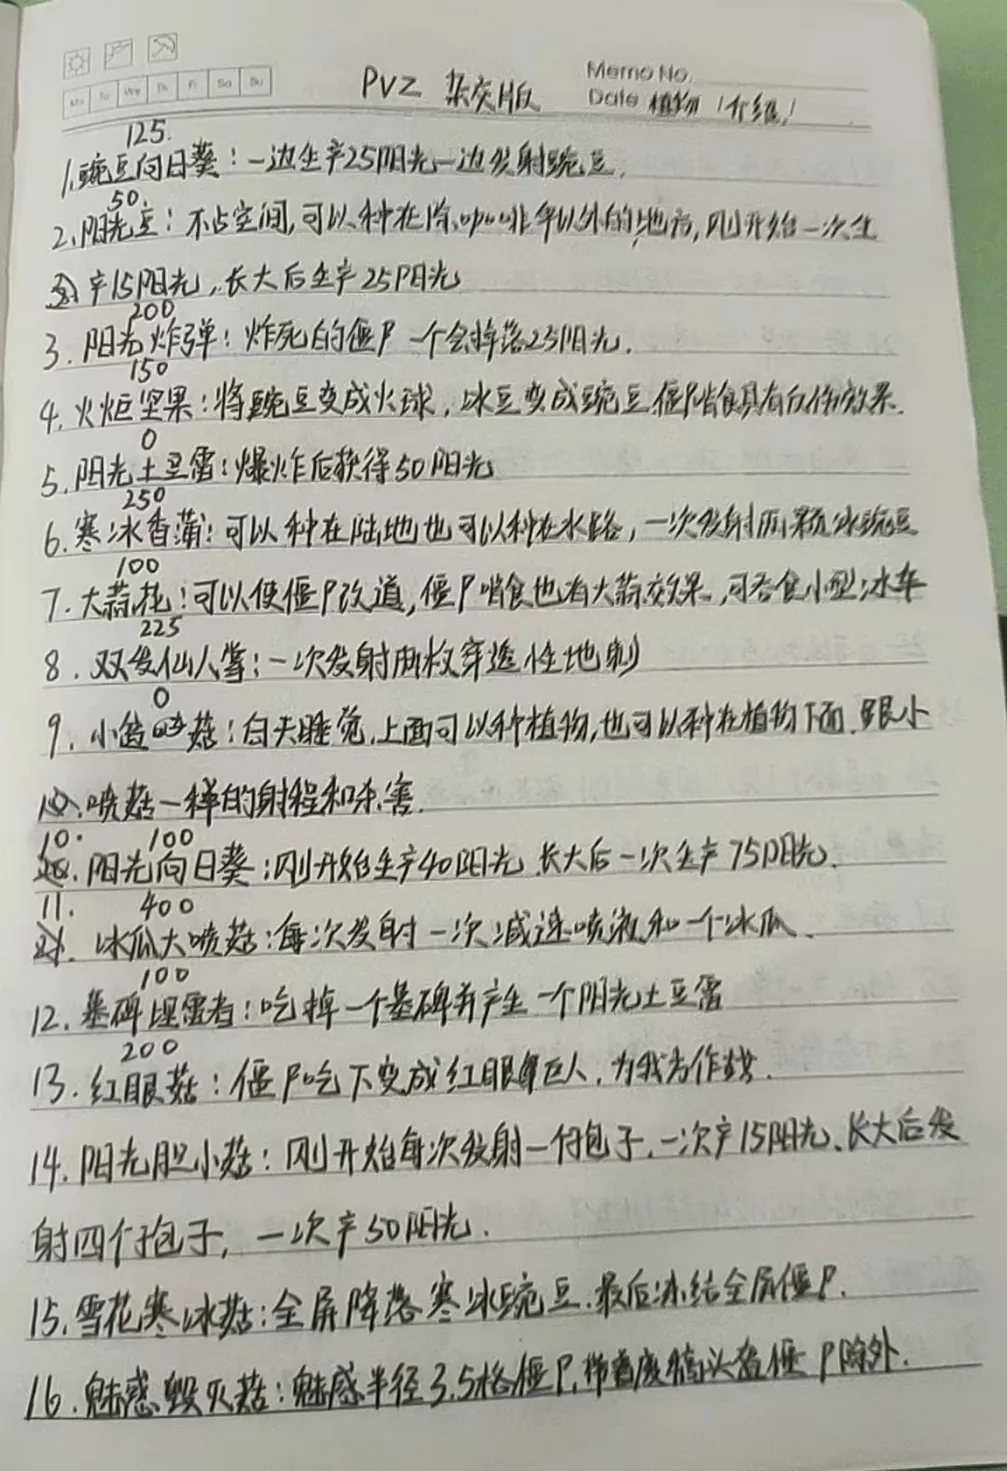 Mo Tu We Th Fr Sa Su
Memo No.
PVZ 杂交版
Date 植物(介绍)
125.
1.豌豆向日葵：一边生产25阳光一边发射豌豆.
50.
2.阳光豆：不占空间,可以种在除咖啡年以外的地方,刚开始一次生
产15阳光,长大后生产25阳光
200
3.阳光炸弹：炸死的僵尸一个会掉落25阳光.
150
4.火炬坚果：将豌豆变成火球,冰豆变成豌豆僵尸啃食具有反伤效果.
0
5.阳光土豆雷：爆炸后获得50阳光
250
6.寒冰香蒲：可以种在陆地也可以种在水路,一次发射两颗冰豌豆
100
7.大蒜花：可以使僵尸改道,僵尸啃食也有大蒜效果,可吞食小型冰车
225
8.双发仙人掌：一次发射两枚穿透性地刺
0
9.小盆菇：白天睡觉.上面可以种植物,也可以种在植物下面.跟小
喷菇一样的射程和杀害.
10. 100
阳光向日葵：刚开始生产40阳光.长大后一次生产75阳光.
11. 400
冰瓜大喷菇：每次发射一次减速喷液和一个冰瓜.
100
12.墓碑埋雷者：吃掉一个墓碑并产生一个阳光土豆雷
200
13.红眼菇：僵尸吃下变成红眼巨人,为我方作战.
14.阳光胆小菇：刚开始每次发射一个包子.一次产15阳光.长大后发
射四个孢子,一次产50阳光.
15.雪花寒冰菇：全屏降落寒冰豌豆.最后冻结全屏僵尸.
16.魅惑毁灭菇：魅惑半径3.5格僵尸,带着废稿头盔僵尸除外.